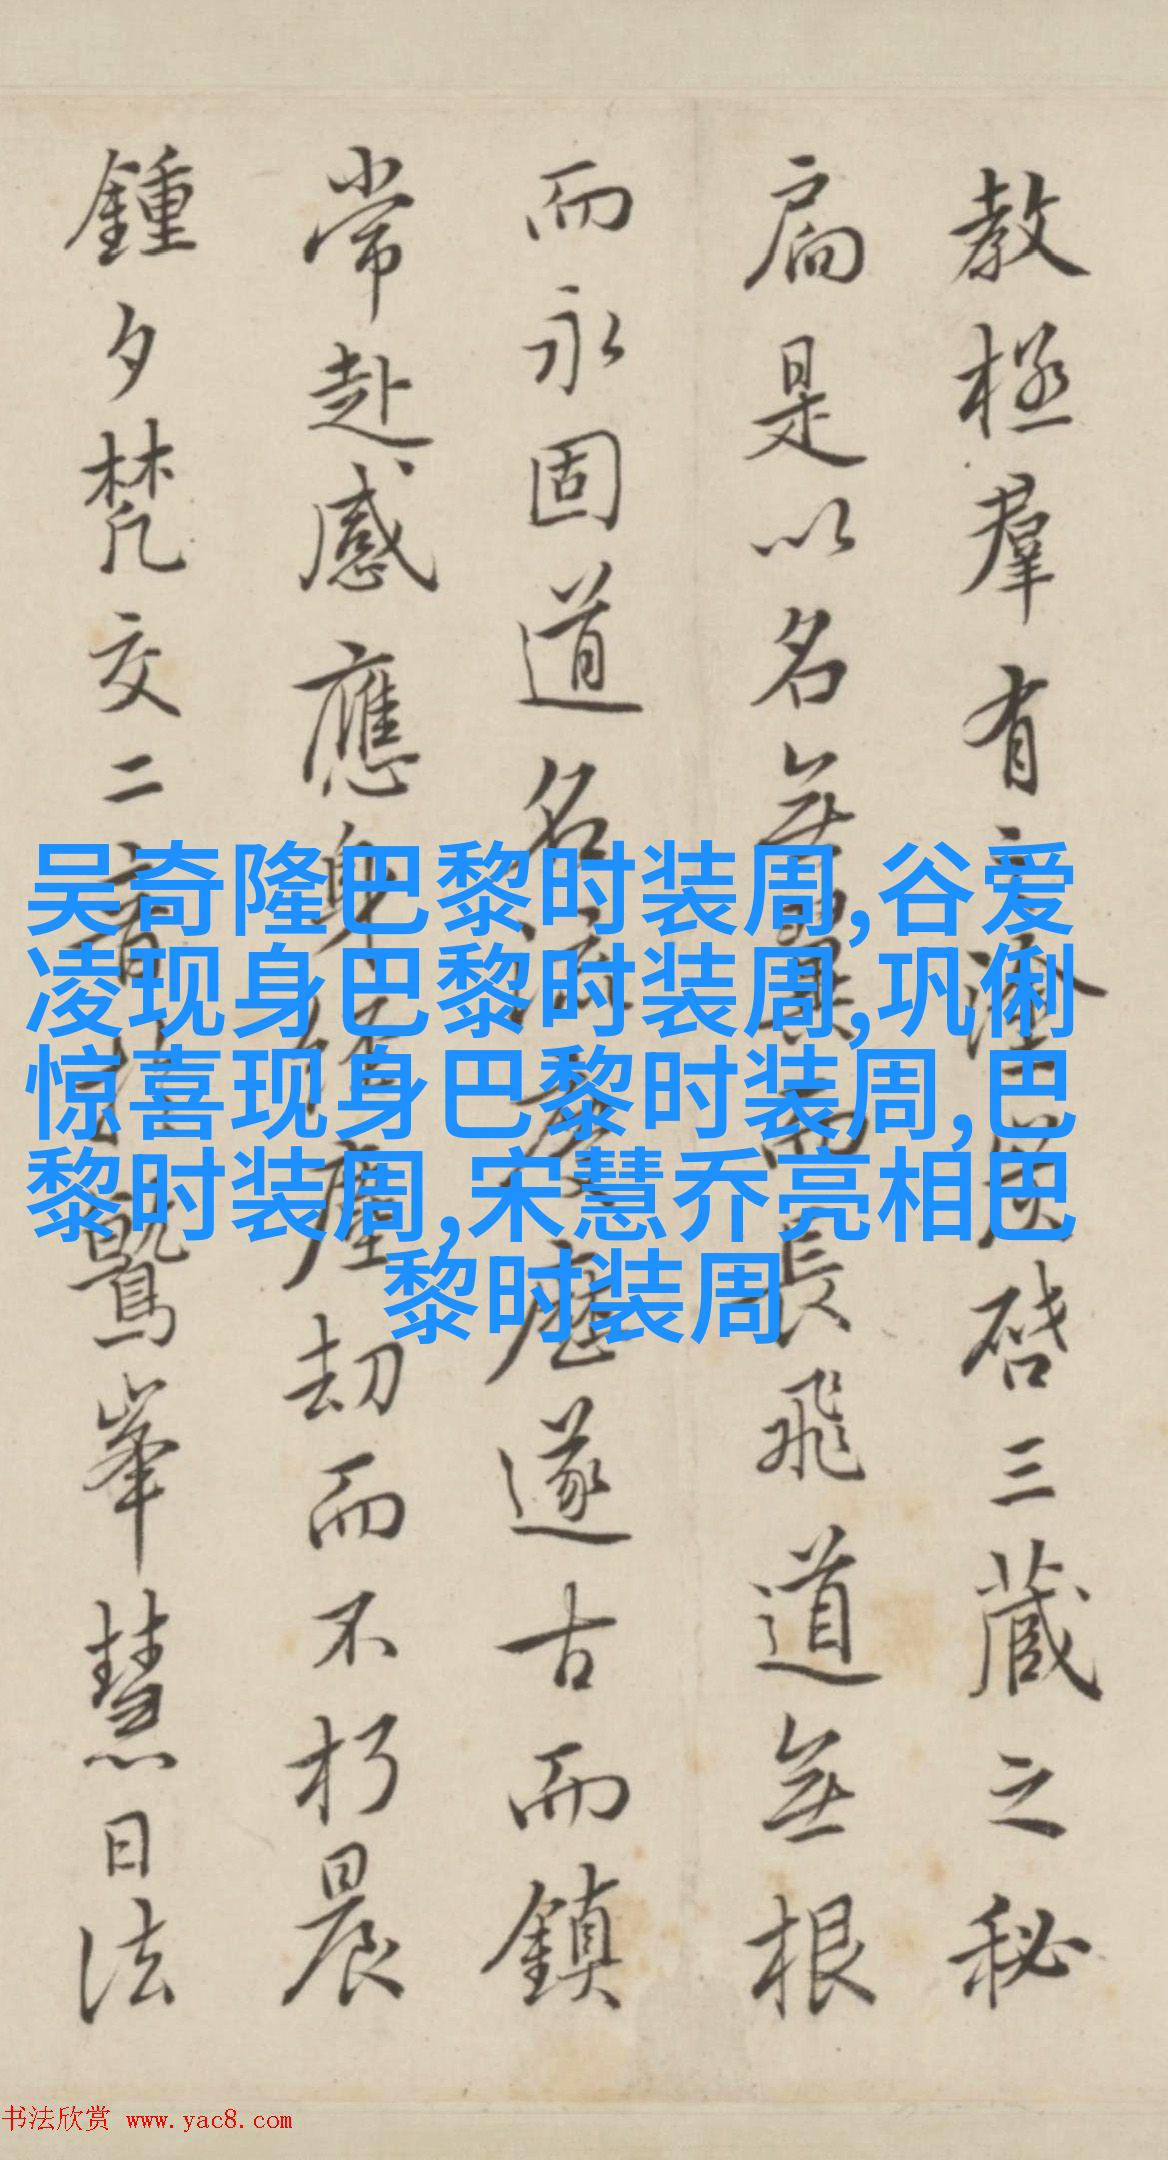 教極羣有之塗炭啓三藏之秘
扃是以名無翼而長飛道無根
而永固道名流慶歷遂古而鎮
常赴感應身經塵劫而不朽晨
鍾夕梵交二音於鷲峯慧日法
吴奇隆巴黎时装周,谷爱
凌现身巴黎时装周,巩俐
惊喜现身巴黎时装周,巴
黎时装周,宋慧乔亮相巴
黎时装周
书法欣赏 www.yac8.com